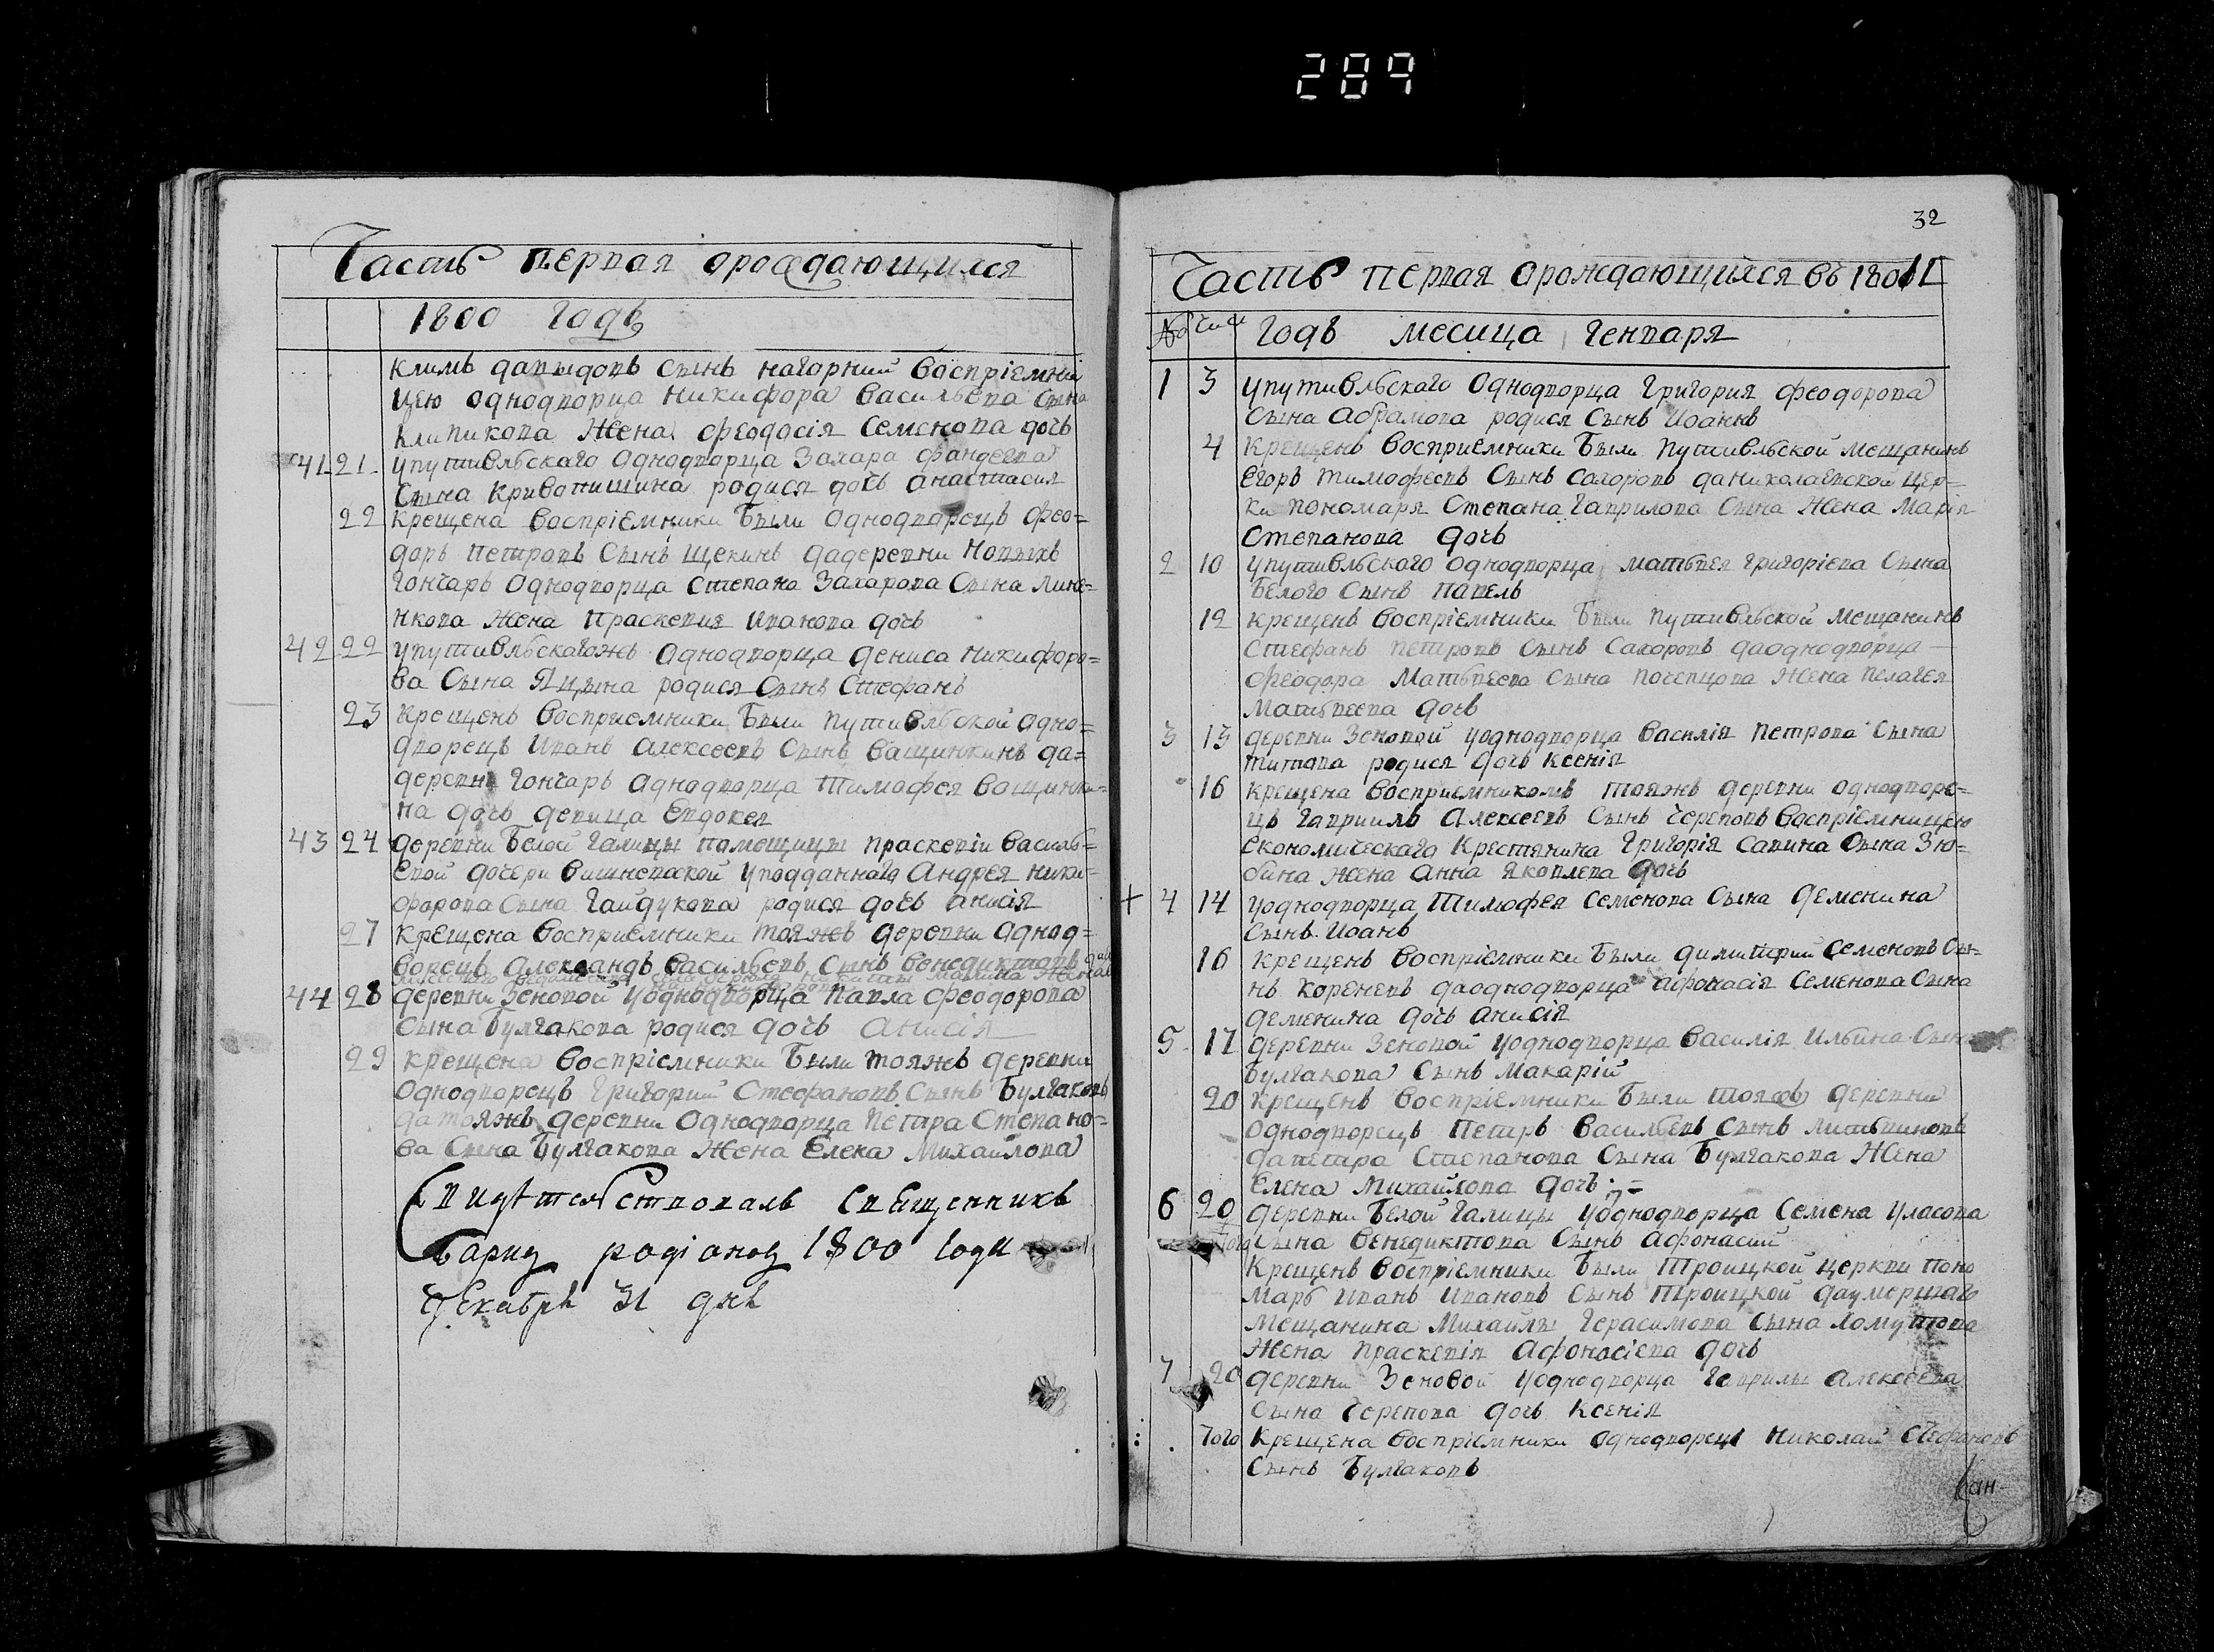 289
Часть первая ораждающихся
1800 годъ
климъ давыдовъ сынъ нагорний восприемни
цею однодворца никифора васильева сына
кливикова жена феодосія семенова дочь
41 21 упутивльскаго однодворца захара
сына кривопишина родися дочь анастасия
22 крещена восприемники были однодворецъ фео=
доръ петровъ сынъ щекинъ дадеревни новыхъ
гончаръ однодворца степана захарова сына лине=
нкова жена праскевия иванова дочь
42 22 упутивльскагожъ однодворца дениса никифоро=
ва сына яцына родися сынъ стефанъ
23 крещенъ восприемники были путивльской одно=
дворецъ иванъ алексеевъ сынъ ващинкинъ да=
деревни гончаръ однодворца тимофея ващинки=
на дочь девица евдокея
43 24 деревни белой галицы памещицы праскевіи василь=
евой дочери вишневской уподданнаго андрея ники=
форова сына гайдукова родися дочь анисія
27 крещена восприемники тояжъ деревни однод=
ворецъ александъ васильевъ сынъ венедиктовъ
44 28 деревни зеновой уоднодворца павла феодорова
сына булгакова родися дочь анисія
29 крещена восприемники были тояжъ деревни
однодворецъ григорий стефановъ сынъ булгаковъ
датояжъ деревни однодворца петра степано=
ва сына булгакова жена елена михайлова
свидѣтельствовалъ священникъ
родіоновъ 1800 года
декабря 31 дня
32
Часть первая орождающихся въ 1801
№ числ годъ месица генваря
1 3 упутивльскаго однодворца григория феодорова
сына абрамова родися сынъ иоаннъ
4 крещенъ восприемники были путивльской мещанинъ
егоръ тимофеевъ сынъ сахоровъ даниколаевской цер=
кви пономаря степана гаврилова сына жена марія
степанова дочь
2 10 упутивльского однодворца матвѣя григоріева сына
белого сынъ павелъ
12 крещенъ восприемники были путивльской мещанинъ
стефанъ петровъ сынъ сахоровъ даоднодворца
феодора матвѣева сына почепцова жена пелагея
матвѣева дочь
3 13 деревни зеновой уоднодворца василія петрова сына
титова родися дочь ксенія
16 крещена восприемникомъ тояжъ деревни однодворе=
цъ гаврилъ алексеевъ сынъ черевовъ восприемницею
економическаго крестянина григорія савина сына зю=
бина жена анна яковлева дочь
+ 4 14 уоднодворца тимофея семенова сына деменина
сынъ иоанъ
16 крещенъ восприемники были димитрий семеновъ сы=
нъ кореневъ даоднодворца афонасія семенова сына
деменина дочь анисія
5 17 деревни зеновой уоднодворца василія ильина сына
булгакова сынъ макарій
20 крещенъ восприемники были тояжъ деревни
однодворецъ петръ васильевъ сынъ литвиновъ
дапетра степанова сына булгакова жена
елена михайлова дочь
6 20 деревни белой галицы уоднодворца семена уласова
сына венедиктова сынъ афонасий
крещенъ восприемники были троицкой церкви поно
марь иванъ ивановъ сынъ троицкой даумершаго
мещанина михайлы герасимова сына хомутова
жена праскевія афонасіева дочь
7 20 деревни зеновой уоднодворца гаврилы алексеева
сына черепова дочь ксенія
того крещена восприемники однодворецъ николай стефановъ
сынъ булгаковъ